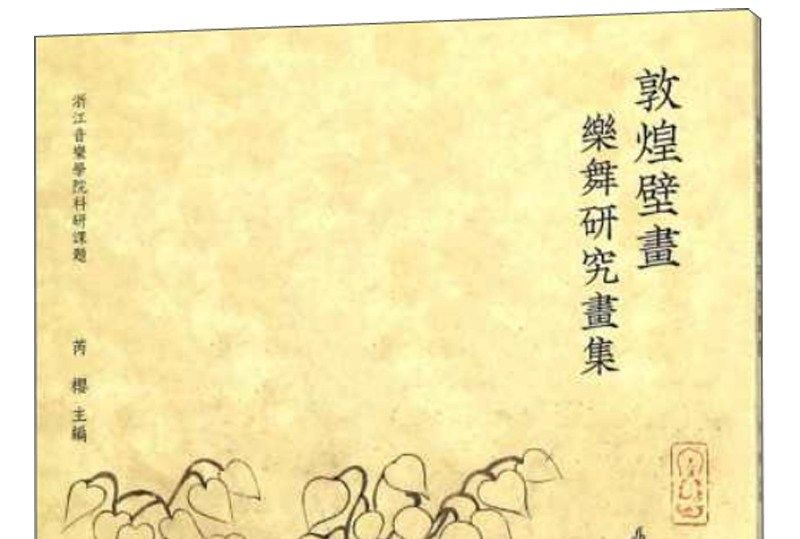 敦煌壁畫
樂舞研究畫集
浙江音樂學院科研課題
芮櫻 主編